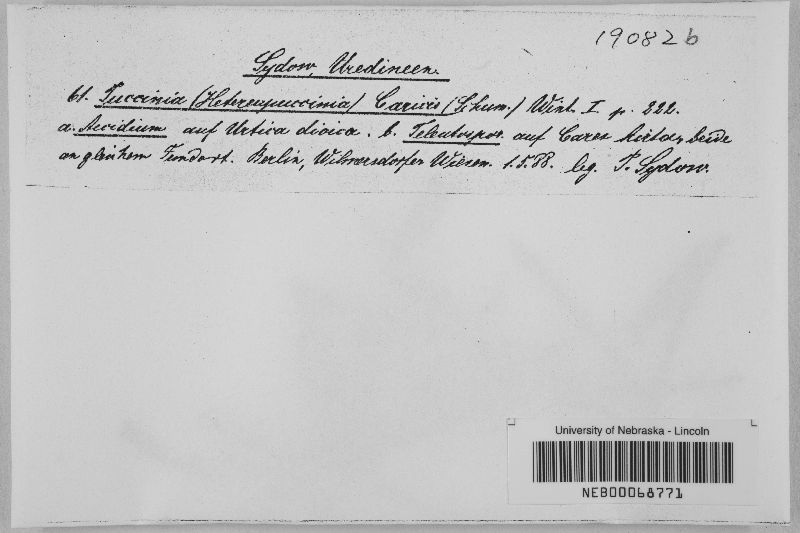 190826
Sydow, Uredineen.
61. Puccinia (Hetereupuccinia) Caricis (Schum.) Wint. I p. 222.
a. Aecidium auf Urtica dioica. b. Teleutospor. auf Carex hirta, beide
an gleichem Fundort. Berlin, Wilmersdorfer Wiesen. 1.5.88. leg. P. Sydow.
University of Nebraska - Lincoln
NEB00068771